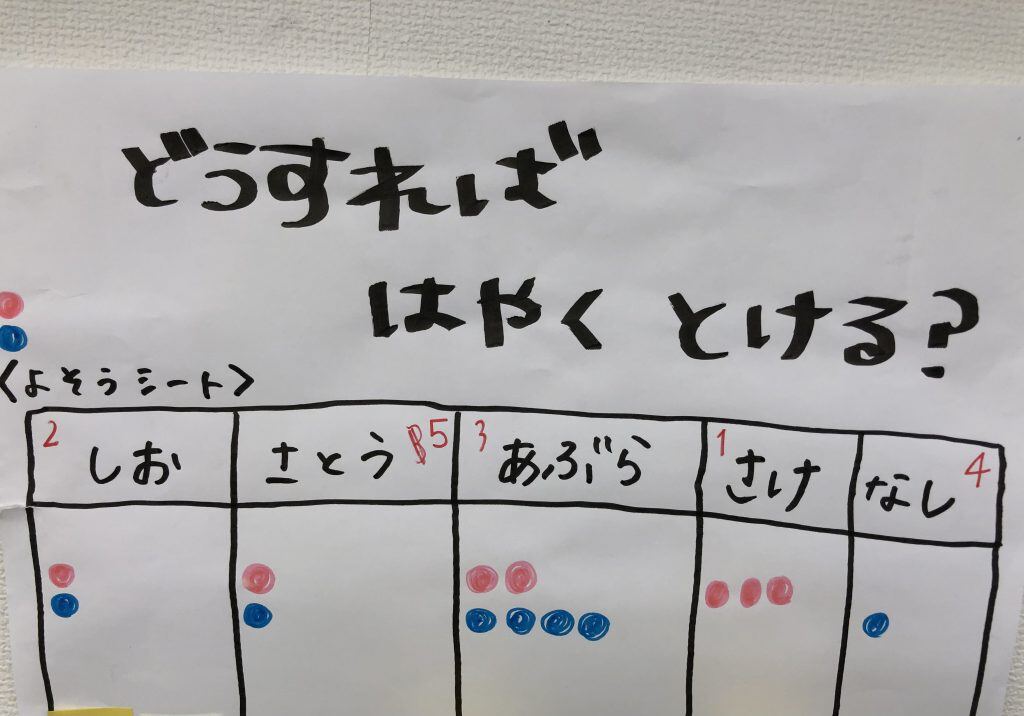 どうすれば
はやく とける?
<よそうシート>
2 しお さとう 5 3 あぶら 1 さけ なし 4